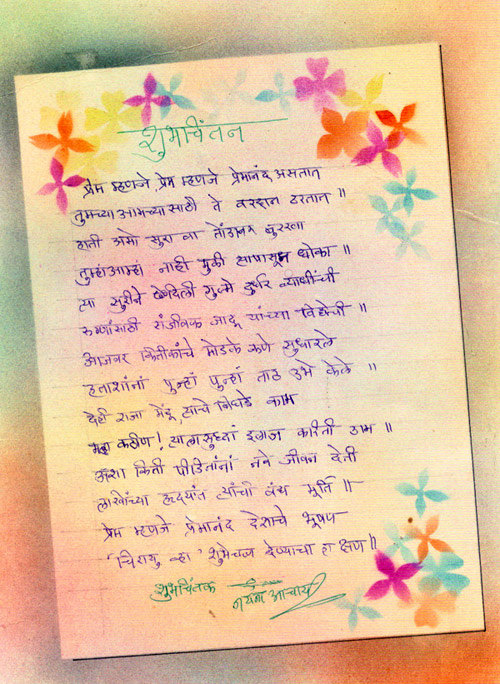 शुभचिंतन
प्रेम म्हणजे प्रेम म्हणजे प्रेमानंद असतात
तुमच्या आमच्यासाठी ते वरदान ठरतात ॥
हाती असो सुरा वा तोंडावर बुरखा
तुम्हांआम्हां नाही मुळी त्यापासून धोका ॥
त्या सुरीने छेदिली गुल्मे दुर्धर व्याधींची
रुग्णांसाठी संजीवक जादू यांच्या
आजवर कितीकांचे मोडके कणे सुधारले
हताशांनां पुन्हां पुन्हां ताठ उभे केले ॥
देही राजा मेंदू, त्याचे काम
महा कठीण! त्यालासुध्दां इलाज करिती ठाम ॥
अशा किती पीडितांनां नवे जीवन देती
लाखोंच्या हृदयांत त्यांची वंद्य मूर्ति ॥
प्रेम म्हणजे प्रेमानंद देशाचे भूषण
'चिरायु व्हा' शुभेच्छा देण्याचा हा क्षण ॥
शुभचिंतक
आचार्य